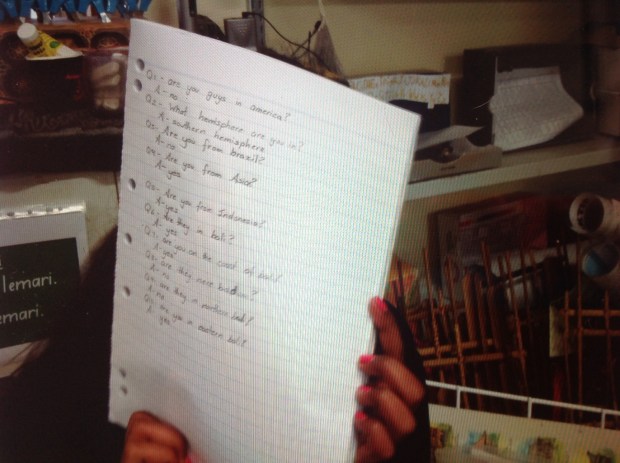 Q1- are you guys in america?
A- no
Q2- What hemisphere are you in?
A- southern hemisphere
Q3- Are you from brazil?
A- no
Q4- Are you from Asia?
A- yes
Q5- Are you from Indonesia?
A- yes
Q6- Are they in bali?
A- yes
Q7- are you on the coast of bali?
A- yes
Q8- are they near
A- no
Q9- are they in northern bali?
A- no
are you in eastern bali?
A- yes
lemari.
emari.